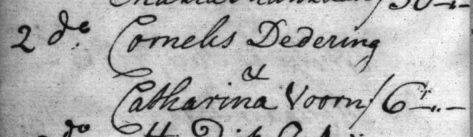 2 do Cornelis Dedering
&
Catharina Voorn / 6